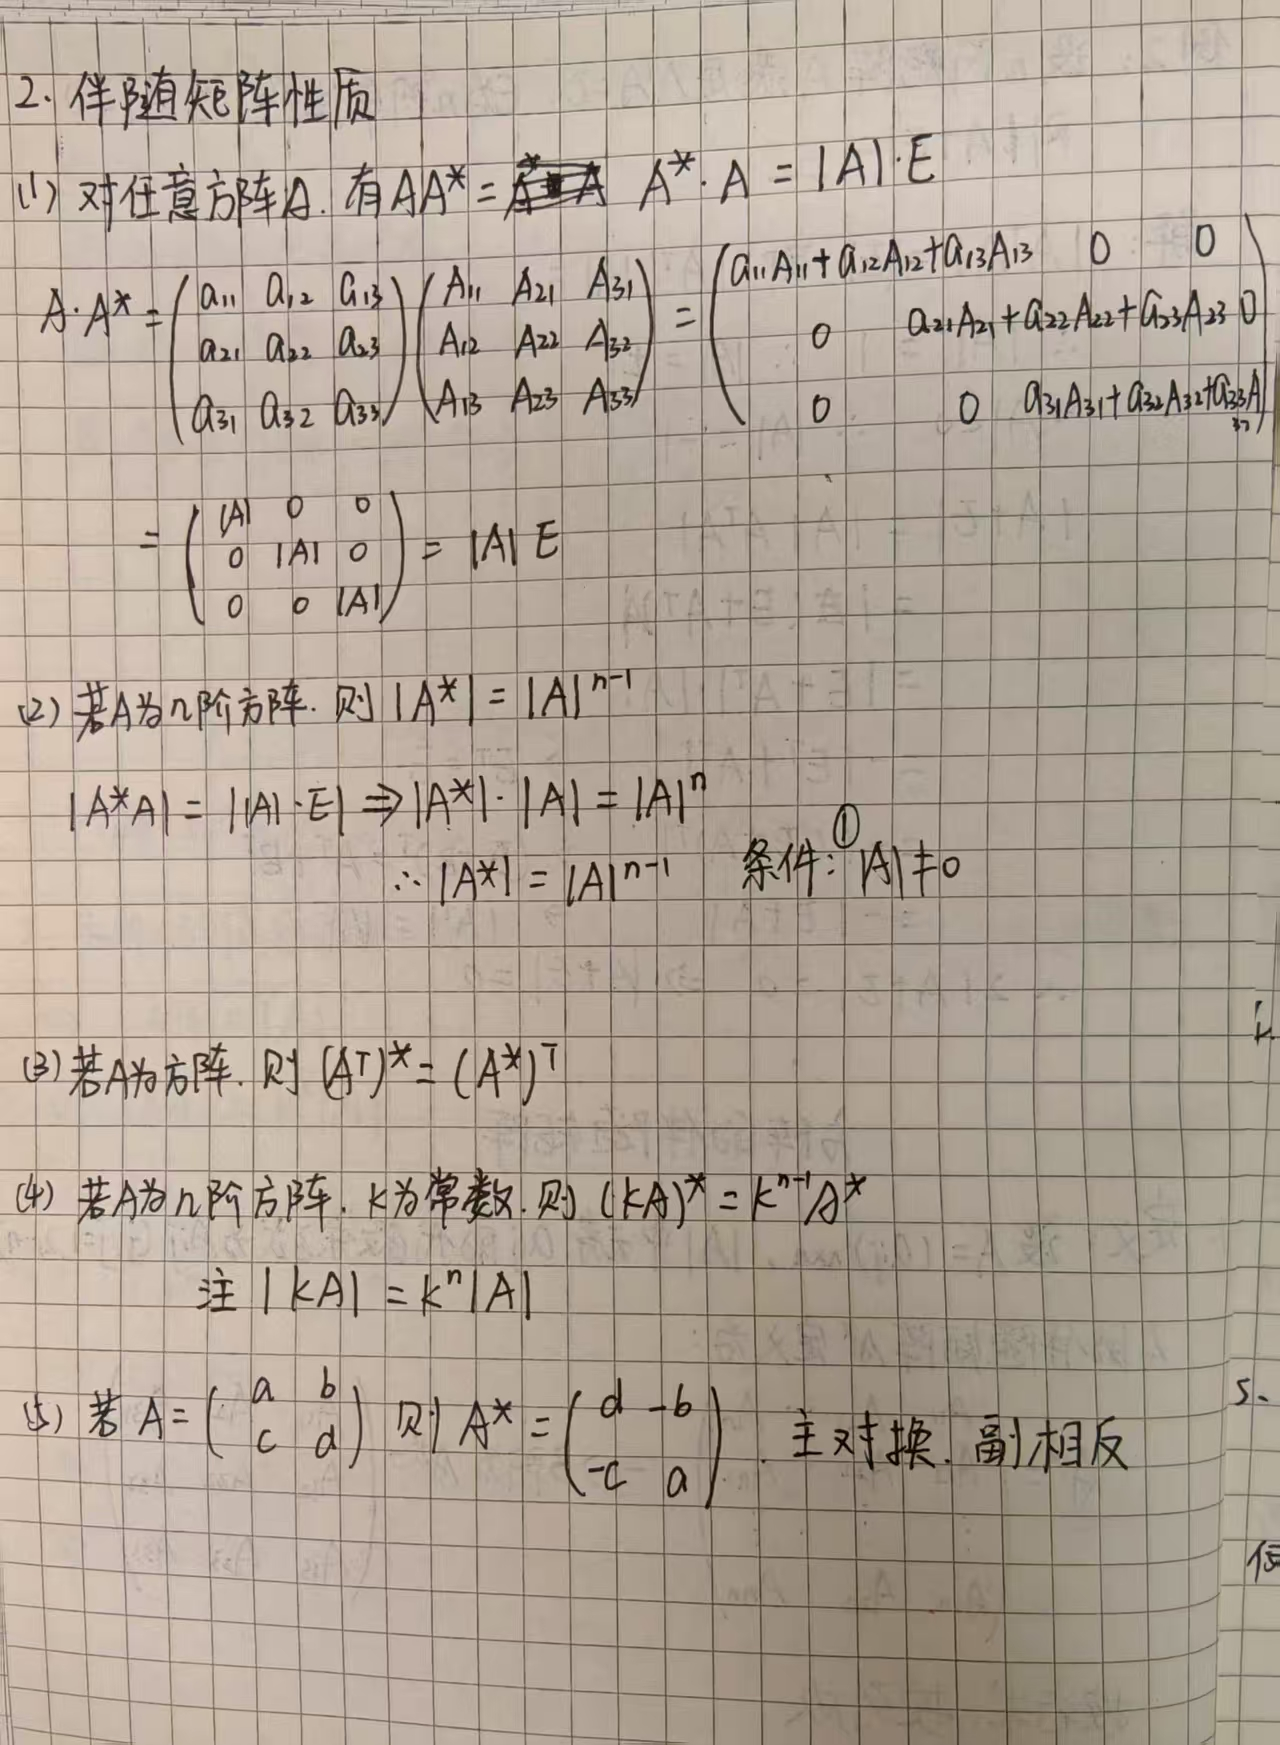 2. 伴随矩阵性质
(1) 对任意方阵A. 有AA* = A*·A = |A|·E
A·A* = (a11 a12 a13 / a21 a22 a23 / a31 a32 a33)(A11 A21 A31 / A12 A22 A32 / A13 A23 A33) = (a11A11+a12A12+a13A13 0 0 / 0 a21A21+a22A22+a23A23 0 / 0 0 a31A31+a32A32+a33A33)
= (|A| 0 0 / 0 |A| 0 / 0 0 |A|) = |A| E
(2) 若A为n阶方阵. 则 |A*| = |A|^(n-1)
|A*A| = ||A|·E| ⇒ |A*|·|A| = |A|^n
∴ |A*| = |A|^(n-1) 条件: ① |A|≠0
(3) 若A为方阵. 则 (A^T)* = (A*)^T
(4) 若A为n阶方阵. k为常数. 则 (kA)* = k^(n-1)A*
注 |kA| = k^n|A|
(5) 若 A = (a b / c d) 则 A* = (d -b / -c a). 主对换. 副相反
5.